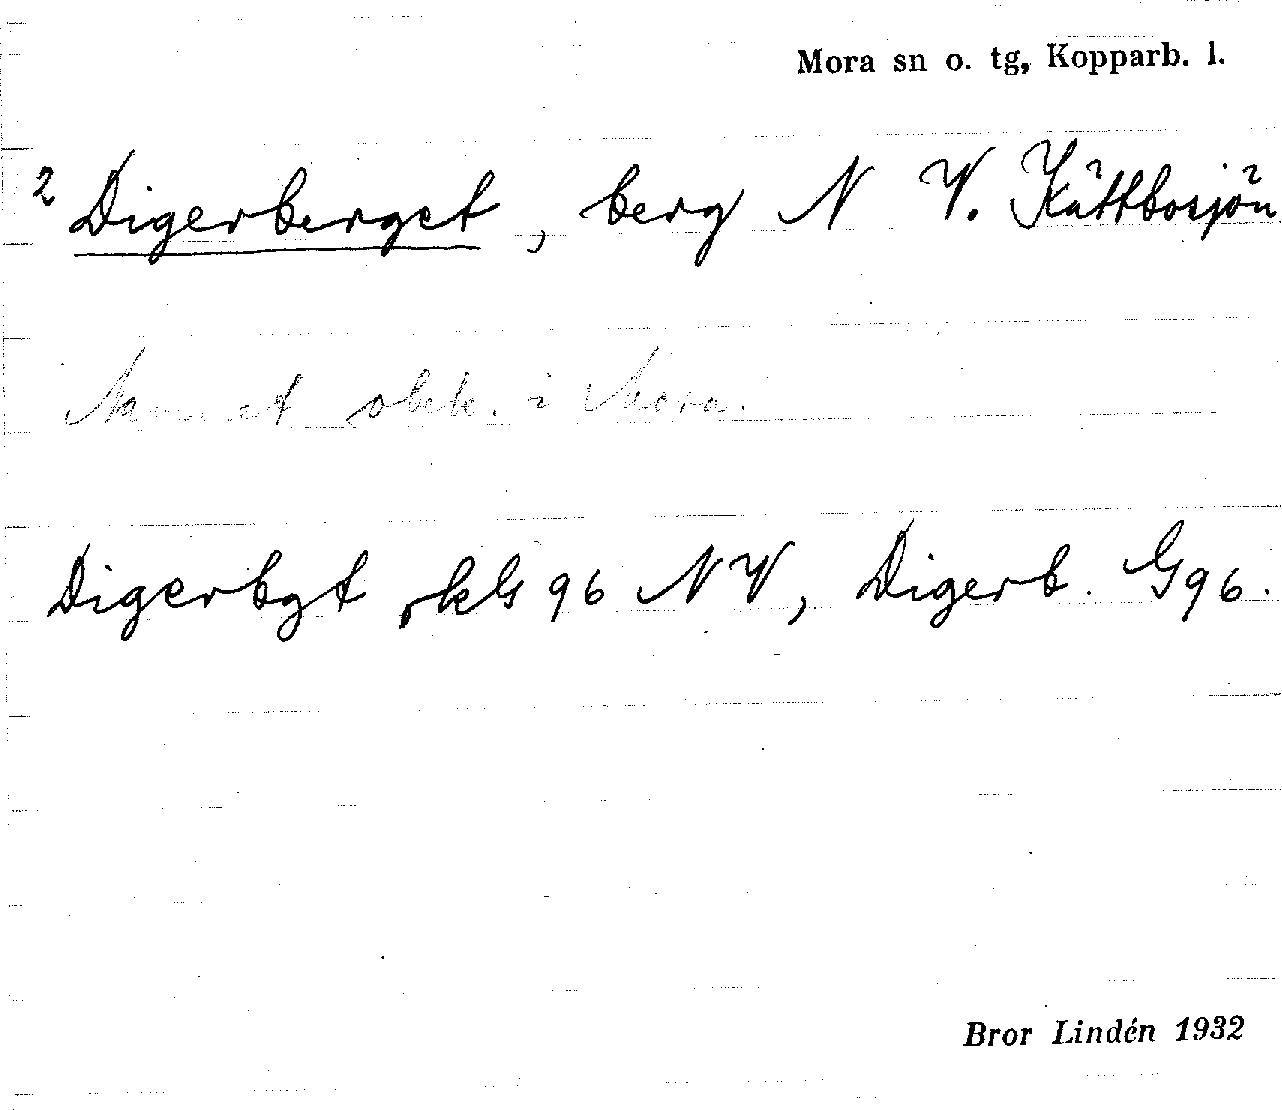 Mora sn o. tg, Kopparb. l.
2 Digerberget, berg N V. Kättbosjön
Namnet obek. i Mora.
Digerbgt, kG 96 NV, Digerb. G96.
Bror Lindén 1932